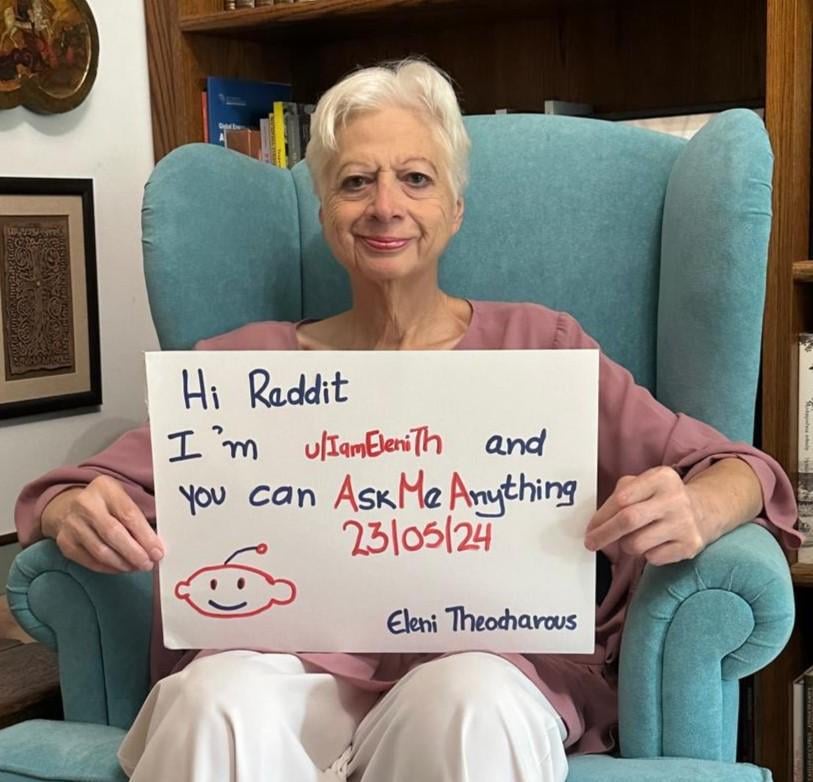 Hi Reddit
I'm u/IamEleniTh and
you can AskMeAnything
23/05/24
Eleni Theocharous